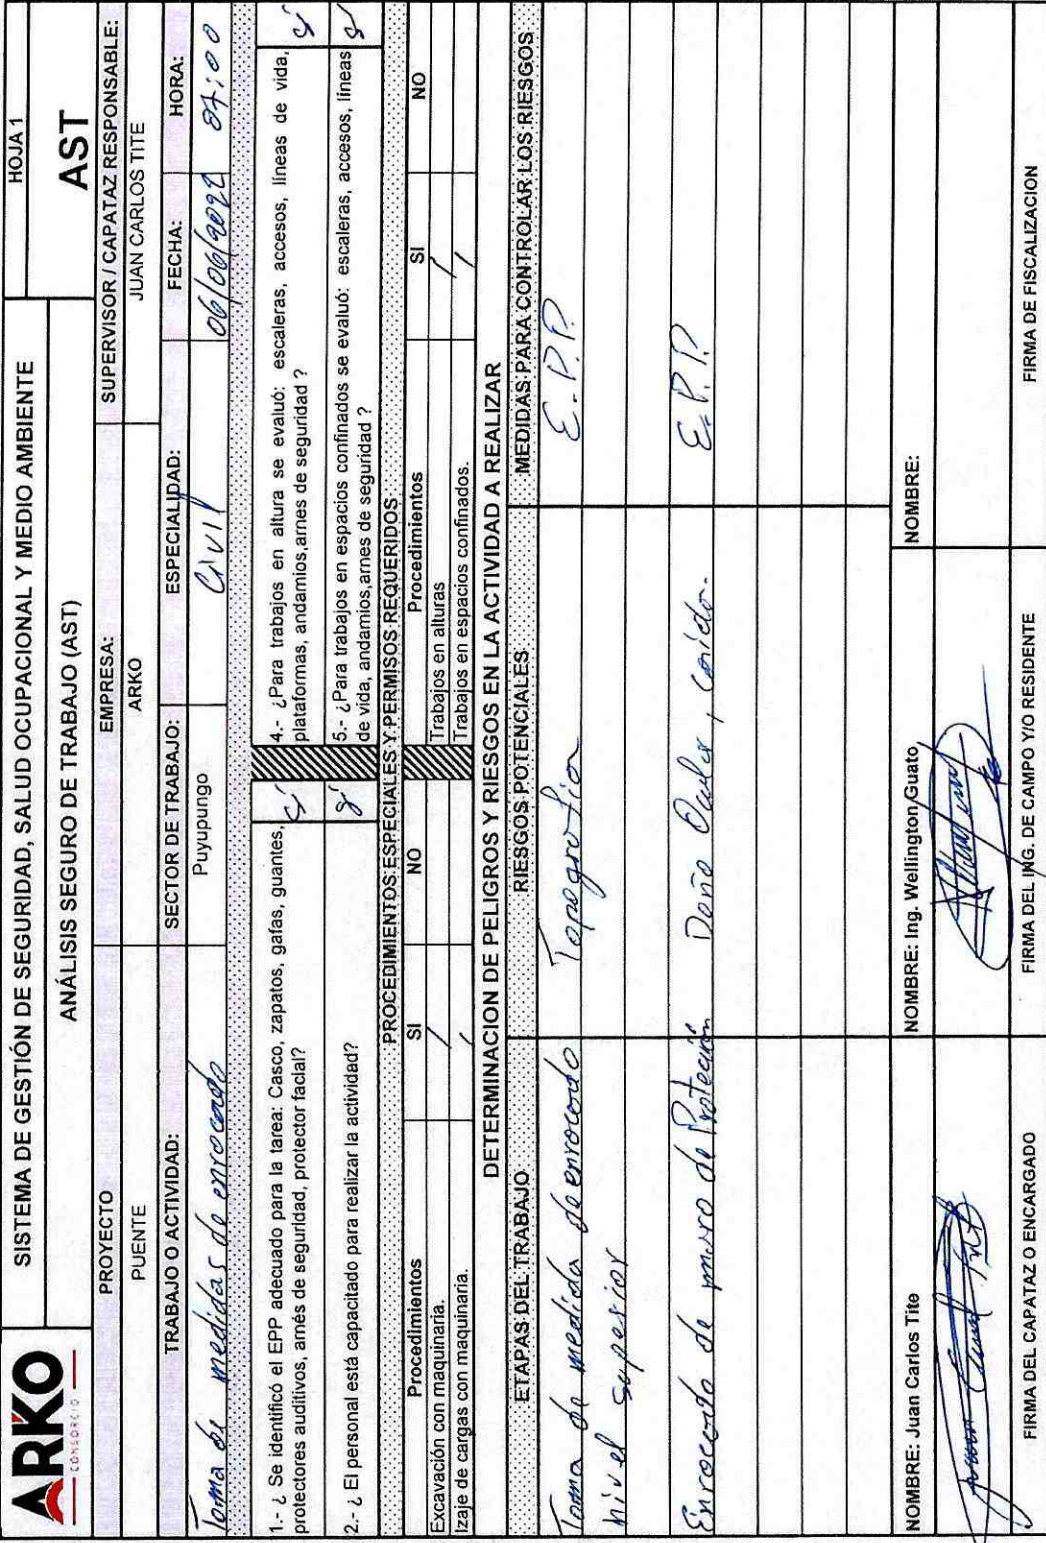 ARKO
CONSORCIO
SISTEMA DE GESTIÓN DE SEGURIDAD, SALUD OCUPACIONAL Y MEDIO AMBIENTE
HOJA 1
ANÁLISIS SEGURO DE TRABAJO (AST)
AST
PROYECTO
EMPRESA:
SUPERVISOR / CAPATAZ RESPONSABLE:
PUENTE
ARKO
JUAN CARLOS TITE
TRABAJO O ACTIVIDAD:
SECTOR DE TRABAJO:
ESPECIALIDAD:
FECHA:
HORA:
Toma de medidas de enrocado
Puyupungo
Civil
06/06/2022
07:00
1.- ¿ Se identificó el EPP adecuado para la tarea: Casco, zapatos, gafas, guantes,
protectores auditivos, arnés de seguridad, protector facial?
sí
4.- ¿Para trabajos en altura se evaluó: escaleras, accesos, líneas de vida,
plataformas, andamios,arnes de seguridad ?
sí
2.- ¿ El personal está capacitado para realizar la actividad?
sí
5.- ¿Para trabajos en espacios confinados se evaluó: escaleras, accesos, líneas
de vida, andamios,arnes de seguridad ?
sí
PROCEDIMIENTOS ESPECIALES Y PERMISOS REQUERIDOS
Procedimientos
SI
NO
Procedimientos
SI
NO
Excavación con maquinaria.
/
Trabajos en alturas
/
Izaje de cargas con maquinaria.
/
Trabajos en espacios confinados.
/
DETERMINACION DE PELIGROS Y RIESGOS EN LA ACTIVIDAD A REALIZAR
ETAPAS DEL TRABAJO
RIESGOS POTENCIALES
MEDIDAS PARA CONTROLAR LOS RIESGOS
Toma de medida de enrocado
Topografia
E.P.P.
nivel superior
Enrocado de muro de Proteción
Daño Ocular, Caida.
E.P.P.
NOMBRE: Juan Carlos Tite
NOMBRE: Ing. Wellington Guato
NOMBRE:
FIRMA DEL CAPATAZ O ENCARGADO
FIRMA DEL ING. DE CAMPO Y/O RESIDENTE
FIRMA DE FISCALIZACION